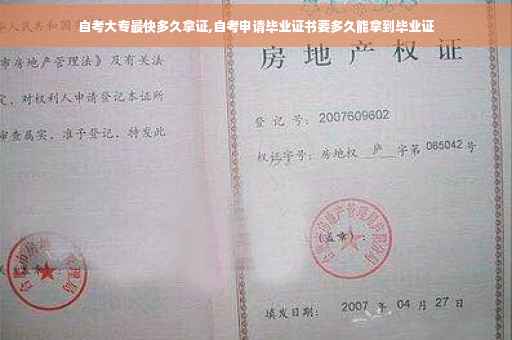 自考大专最快多久拿证,自考申请毕业证书要多久能拿到毕业证
人民共和国
市房地产管理法》及有关法
定，对权利人申请登记本证所
审查属实，准予登记，特发此
房地产权证
登记号：2007609602
权证字号：房地权 庐 字第 065042 号
(盖章)：
填发日期： 2007 年 04 月 27 日